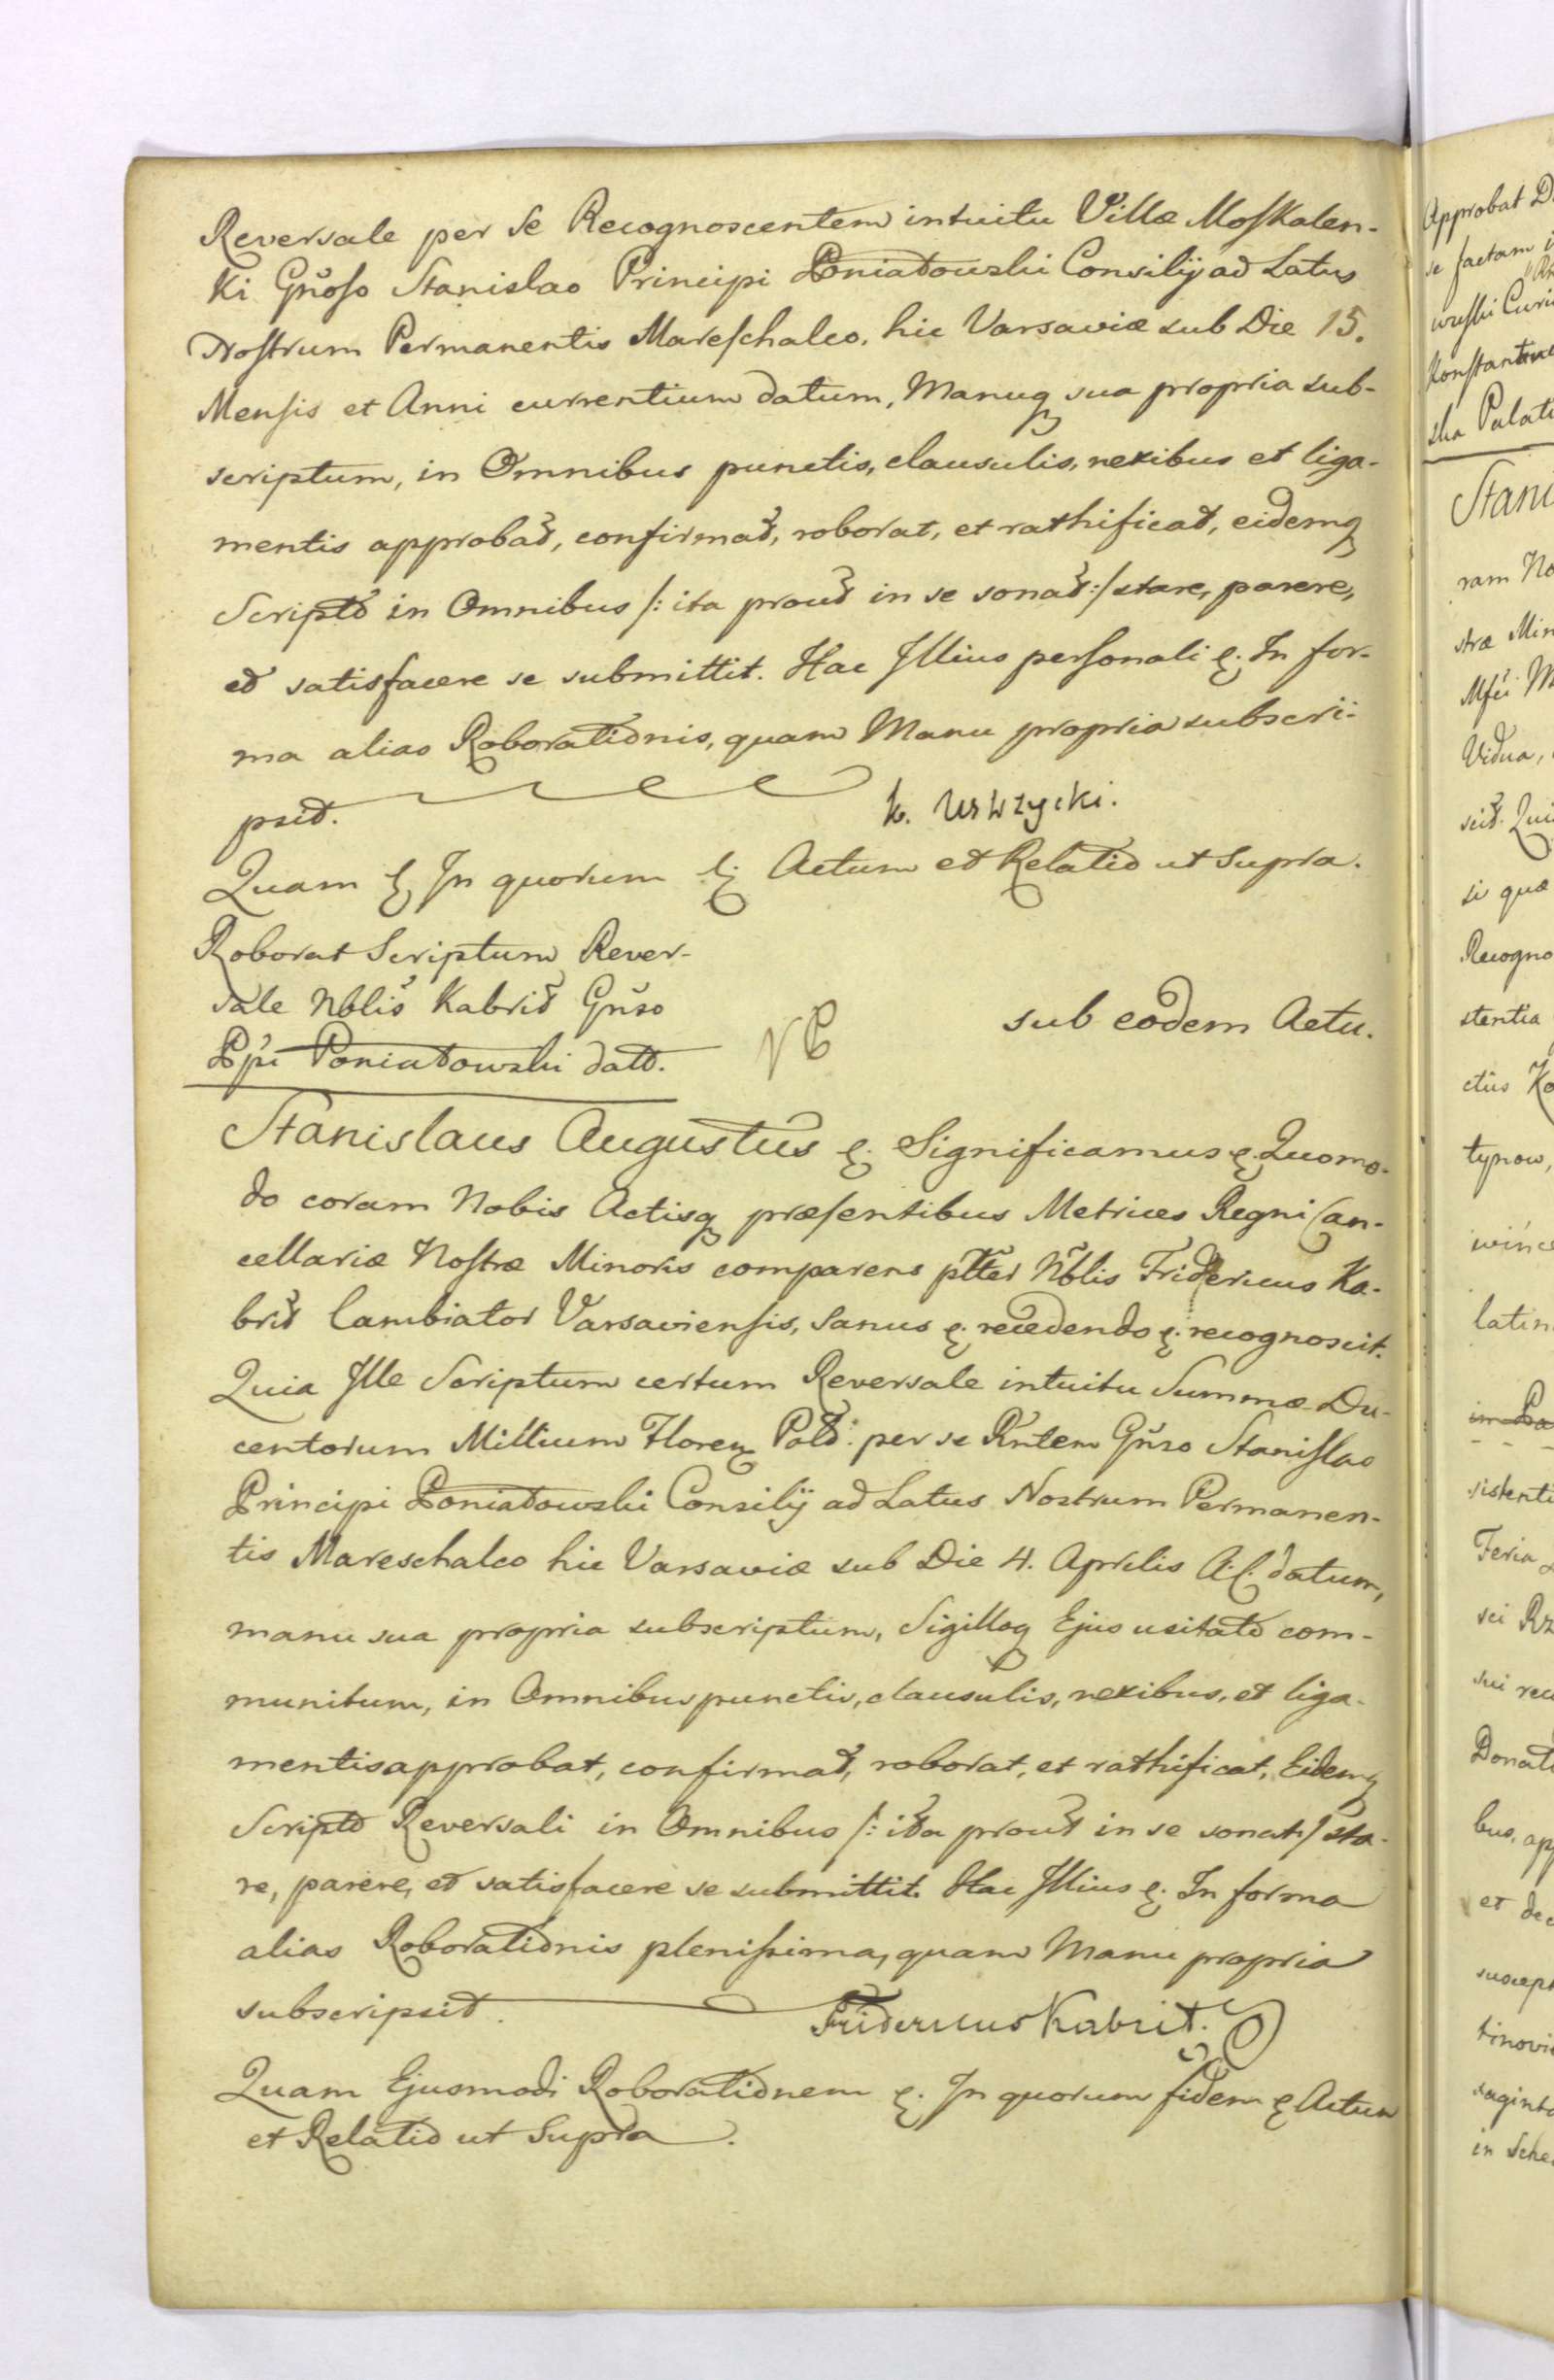 Reversale per Se Recognoscentem intuitu Villæ Moskalen-
ki Gñoso Stanislao Principi Poniatowski Consilij ad Latus
Nostrum Permanentis Mareschalco, hic Varsaviæ sub Die 15.
Mensis et Anni currentium datum, Manuq sua propria sub-
scriptum, in Omnibus punctis, clausulis, nexibus et liga-
mentis approbat, confirmat, roborat, et rathificat, eidemq
Scripto in Omnibus /: ita prout in se sonat :/ stare, parere,
et satisfacere se submittit. Hac Illius personali &. In for-
ma alias Roborationis, quam Manu propria subscri-
psit.
Quam & In quorum & Actum et Relatio ut Supra.
Roborat Scriptum Rever-
sale Nblis Kabrit Gñso
Ppi Poniatowski dato.
sub eodem Actu.
Stanislaus Augustus &. Significamus &. Quomo-
do coram Nobis Actisq præsentibus Metrices Regni Can-
cellariæ Nostræ Minoris comparens pltter Nblis Fridericus Ka-
brit Cambiator Varsaviensis, Sanus &. recedendo &. recognoscit.
Quia Ille Scriptum certum Reversale intuitu Summæ Du-
centorum Millium Floren Pol: per se Rntem Gñso Stanislao
Principi Poniatowski Consilij ad Latus Nostrum Permanen-
tis Mareschalco hic Varsaviæ sub Die 4. Aprilis A: C: datum,
manu sua propria subscriptum, Sigilloq Ejus usitato com-
munitum, in Omnibus punctis, clausulis, nexibus, et liga-
mentis approbat, confirmat, roborat, et rathificat, Eidemq
Scripto Reversali in Omnibus /: ita prout in se sonat :/ sta-
re, parere, et satisfacere se submittit. Hac Illius &. In forma
alias Roborationis plenissima, quam Manu propria
subscripsit.
Fridericus Kabrit.
Quam Ejusmodi Roborationem &. In quorum fidem & Actum
et Relatio ut Supra.